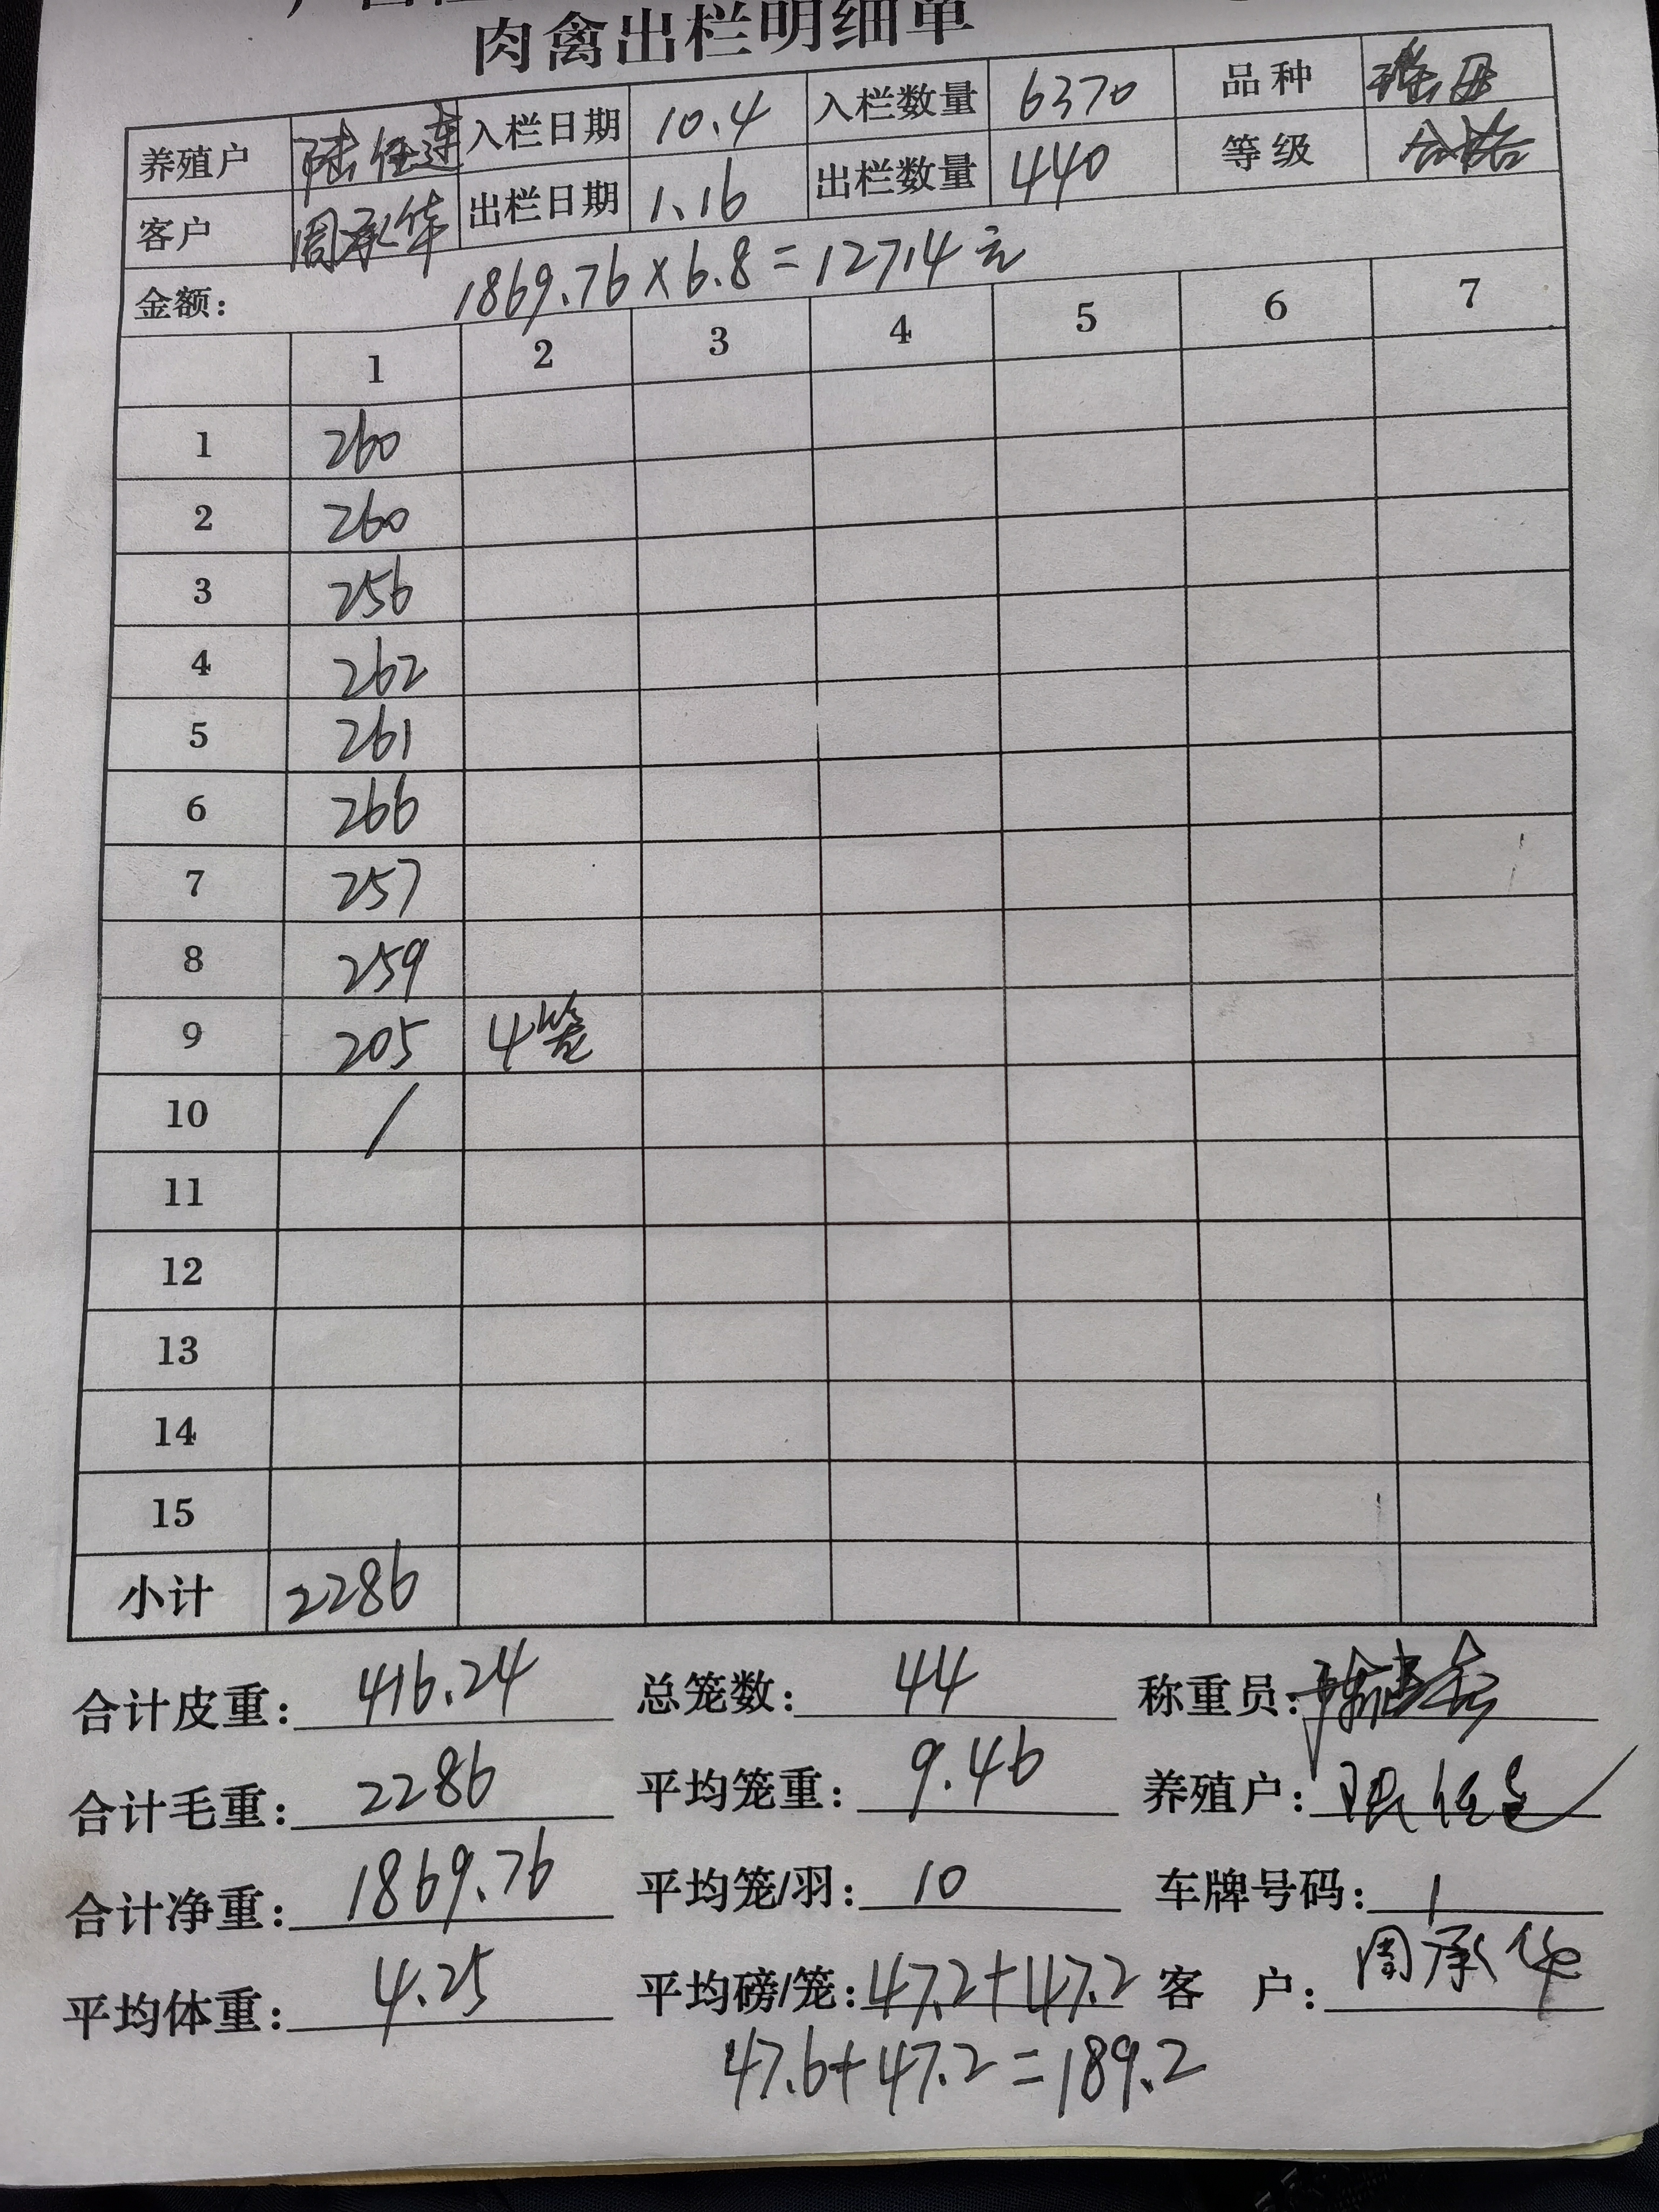 肉禽出栏明细单
养殖户 陆任连 入栏日期 10.4 入栏数量 6370 品种
客户 周承华 出栏日期 1.16 出栏数量 440 等级 合格
金额: 1869.76×6.8=12714元
1 2 3 4 5 6 7
1 260
2 260
3 256
4 262
5 261
6 266
7 257
8 259
9 205 4笼
10 /
11
12
13
14
15
小计 2286
合计皮重: 416.24 总笼数: 44 称重员:
合计毛重: 2286 平均笼重: 9.46 养殖户: 陆任连
合计净重: 1869.76 平均笼/羽: 10 车牌号码: 1
平均体重: 4.25 平均磅/笼: 47.2+47.2 客 户: 周承华
47.6+47.2=189.2